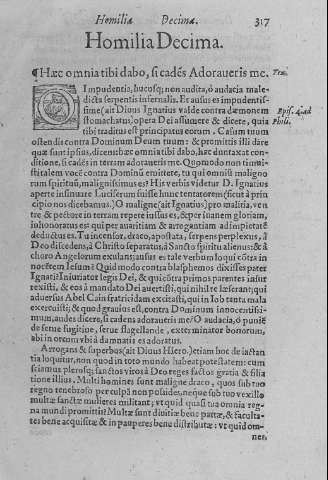 Homilia Decima. 317
Homilia Decima.
¶Hæc omnia tibi dabo, si cadés Adoraueris me. Tex.
O Impudentia, hucusq; non audita, ô audacia male-
dicta serpentis infernalis. Et ausus es impudentis-
sime (ait Diuus Ignatius valde contra dæmonem Epis. 4. ad
stomachatus) opera Dei assumere & dicere, quia Phili.
tibi traditus est principatus eorum. Casum tuum
ostendis contra Dominum Deum tuum: & promittis illi dare
quæ sunt ipsius, dicens: hæc omnia tibi dabo, hac dũtaxat con-
ditione, si cadés in terram adoraueris me. Quomodo non timui-
sti talem vocé contra Dominũ emittere, tu qui omniũ maligno
rum spirituũ, malignissimus es? Hir verbis videtur D. Ignatius
aperte insinuare Luciferum fuisse hunc tentatorem (sicut à prin
cipio nos dicebamus.) O maligne (ait Ignatius) pro malitia, ven
tre & pectore in terram repete iussus es, & per inanem gloriam,
inhonoratus es: qui per auaritiam & arrogantiam ad impietaté
deductus es. Tu incensor, draco, apostata, serpens perplexus, à
Deo discedens, à Christo separatus, à Sancto spiritu alienus: & à
choro Angelorum exulans; ausus es tale verbum loqui cõtra in
nocétem Iesum? Quid modo contra blasphemos dixisses pater
Ignati? Iniuriator legis Dei, & qui cõtra primos parentes insur
rexisti, & eos à mandato Dei auertisti, qui nihil te læserant; qui
aduersus Abel Cain fratricidam excitasti, qui in Iob tenta mala
exercuisti; & quod grauius est, contra Dominum innocentissi-
mum, audes dicere, si cadens adoraueris me? O audacia, ò punié
de serue fugitiue, serue flagellande, exterminator bonorum,
abi in otcum vbi à damnatis es adoratus.
Arrogans & superbus (ait Diuus Hiero.) etiam hoc de iactan
tia loquitur, non quod in toto mundo habeat potestatem: cum
sciamus plerosq; sanctos viros à Deo reges factos gratia & filia
tione illius. Multi homines sunt maligne draco, quos sub tuo
regno tenebroso per culpã non possides, neque sub tuo vexillo
multæ sanctæ mulieres militant; vt quid quasi tua omnia reg-
na mundi promittis? Multæ sunt diuitiæ bene partæ, & faculta-
tes bene acquisitæ & in pauperes bene distributæ: vt quid om-
nes,